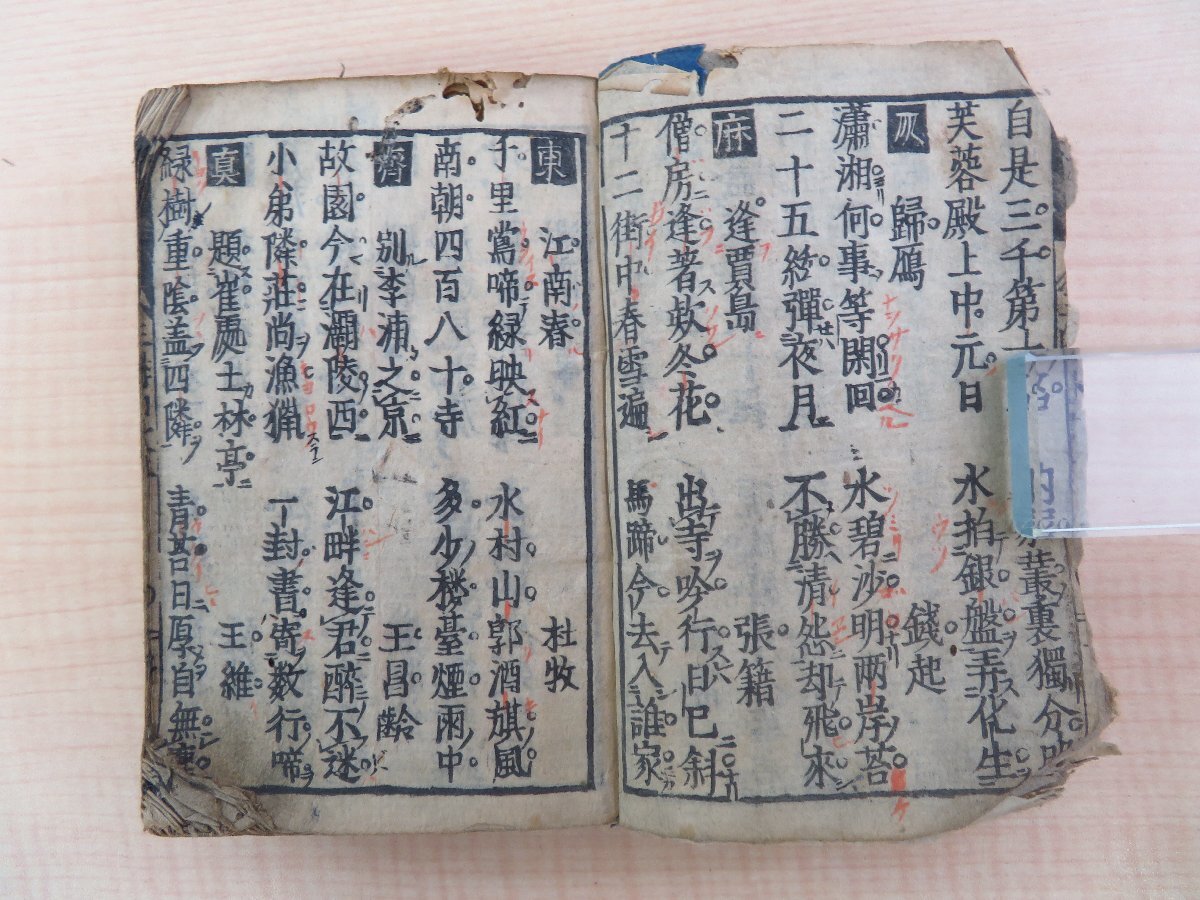 自是三千第
叢裏獨分
芙蓉殿上中元日　水拍銀盤弄化生
灰　歸鴈　錢起
瀟湘何事等閑回　水碧沙明兩岸苔
二十五絃彈夜月　不勝清怨却飛來
麻　逢賈島　張籍
僧房逢著款冬花　出寺吟行日已斜
十二街中春雪遍　馬蹄今去入誰家
東　江南春　杜牧
千里鶯啼緑映紅　水村山郭酒旗風
南朝四百八十寺　多少樓臺煙雨中
齊　別李浦之京　王昌齡
故園今在灞陵西　江畔逢君醉不迷
小弟隣莊尚漁猟　一封書寄数行啼
真　題崔處士林亭　王維
緑樹重陰盖四隣　青苔日厚自無